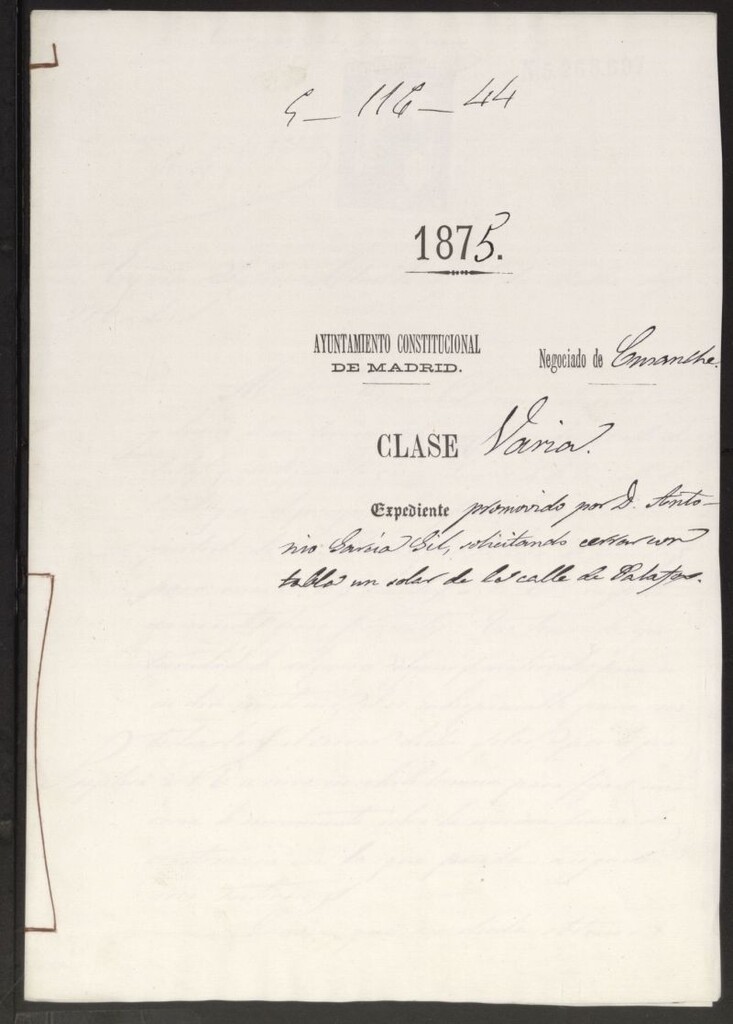 5 - 116 - 44
1875.
AYUNTAMIENTO CONSTITUCIONAL
DE MADRID.
Negociado de Ensanche.
CLASE Varia.
Expediente promovido por D. Anto-
nio Garcia Gil, solicitando cerrar con
tabla un solar de la calle de Palafox.